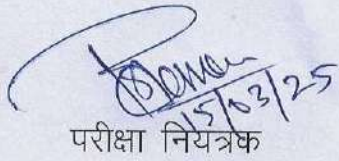 15/03/25
परीक्षा नियत्रक